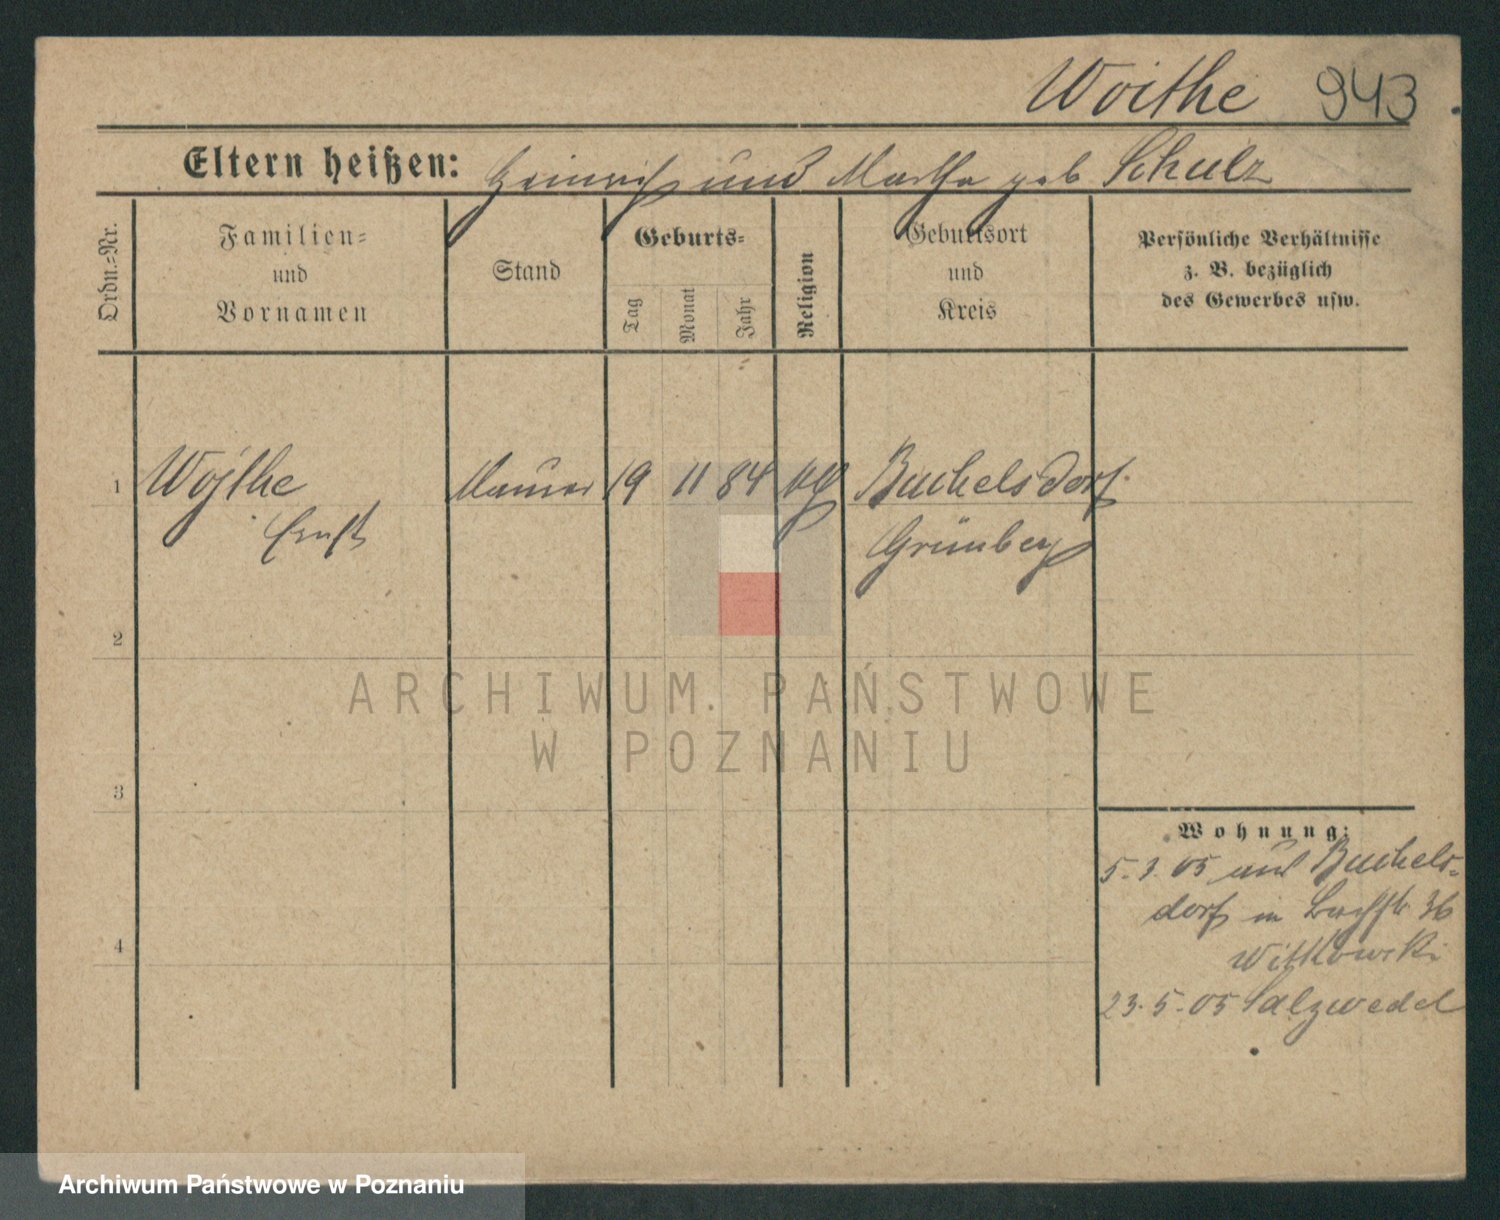 Woithe 943
Eltern heißen: Heinrich und Martha geb Schulz
Ordn.-Nr.
Familien-
und
Vornamen
Stand
Geburts-
Tag
Monat
Jahr
Religion
Geburtsort
und
Kreis
Persönliche Verhältnisse
z. B. bezüglich
des Gewerbes usw.
1 Wojthe Maurer 19 11 84 Buchelsdorf
Ernst Grünberg
2
3
4
Wohnung:
5. 3. 05 aus Buchels-
dorf in 36
Witkowski
23. 5. 05 Salzwedel
ARCHIWUM PAŃSTWOWE
W POZNANIU
Archiwum Państwowe w Poznaniu